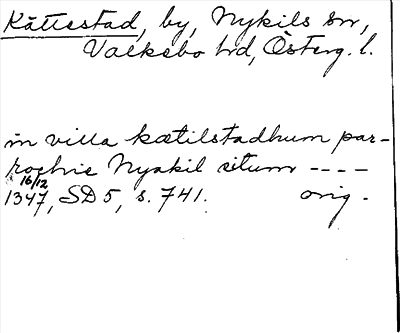 Kättestad, by, Nykils sn,
Valkebo hd, Österg. l.
in villa kætilstadhum par-
rochie Nyakil situm ----
16/12
1347, SD 5, s. 741. orig.